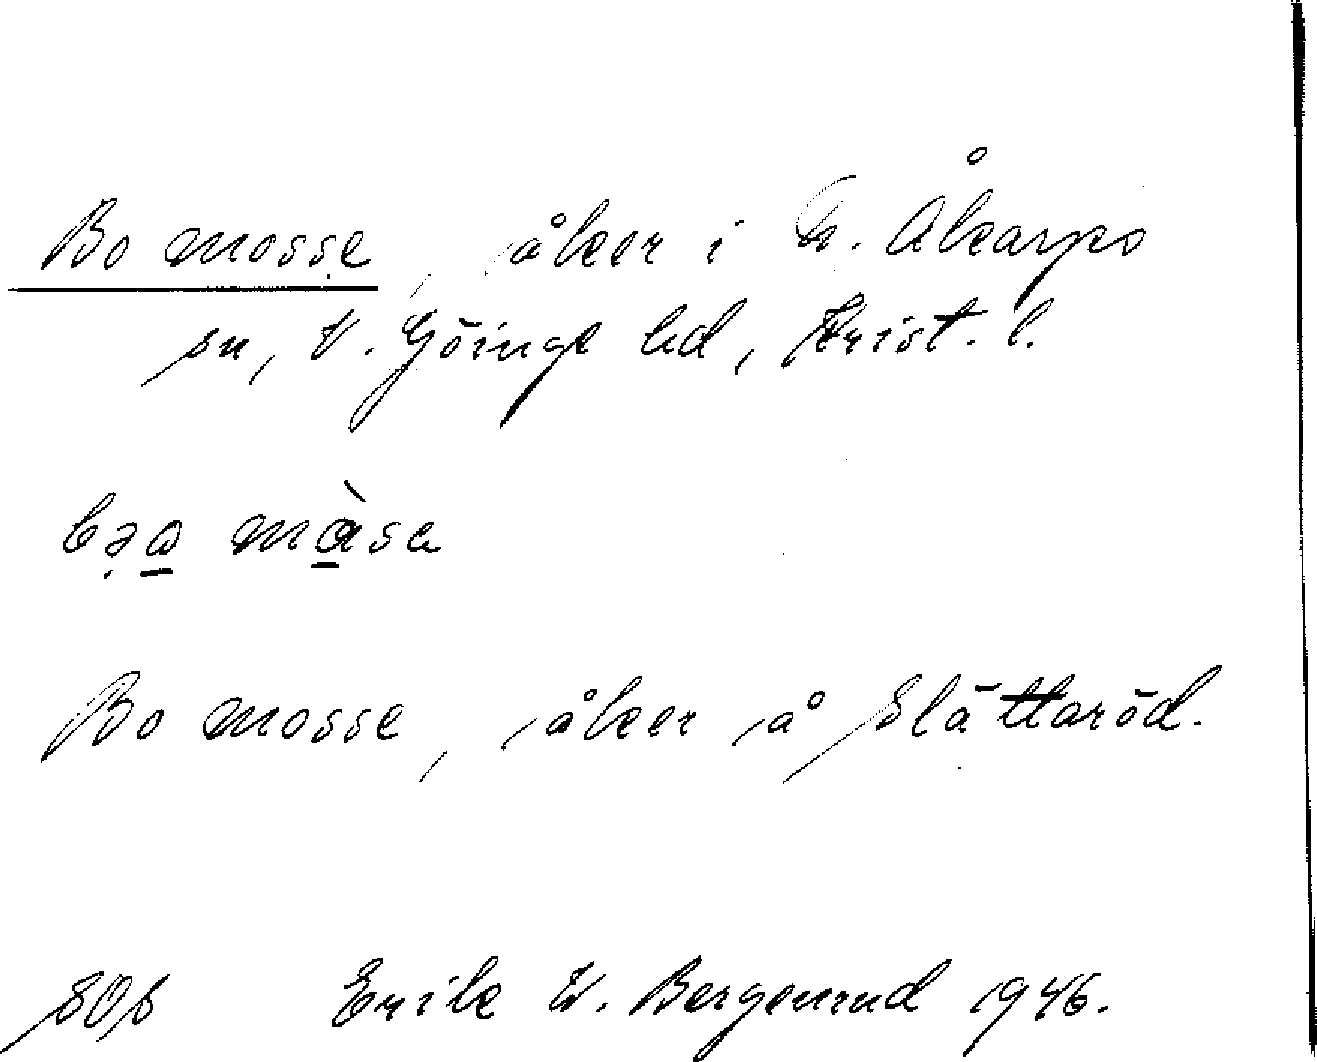 Bo mosse, åker i N. Åkarps
sn, V. Göinge hd, Krist. l.
bəo mòsa
Bo mosse, åker å Slättaröd.
SOS Erik W. Bergenrud 1946.